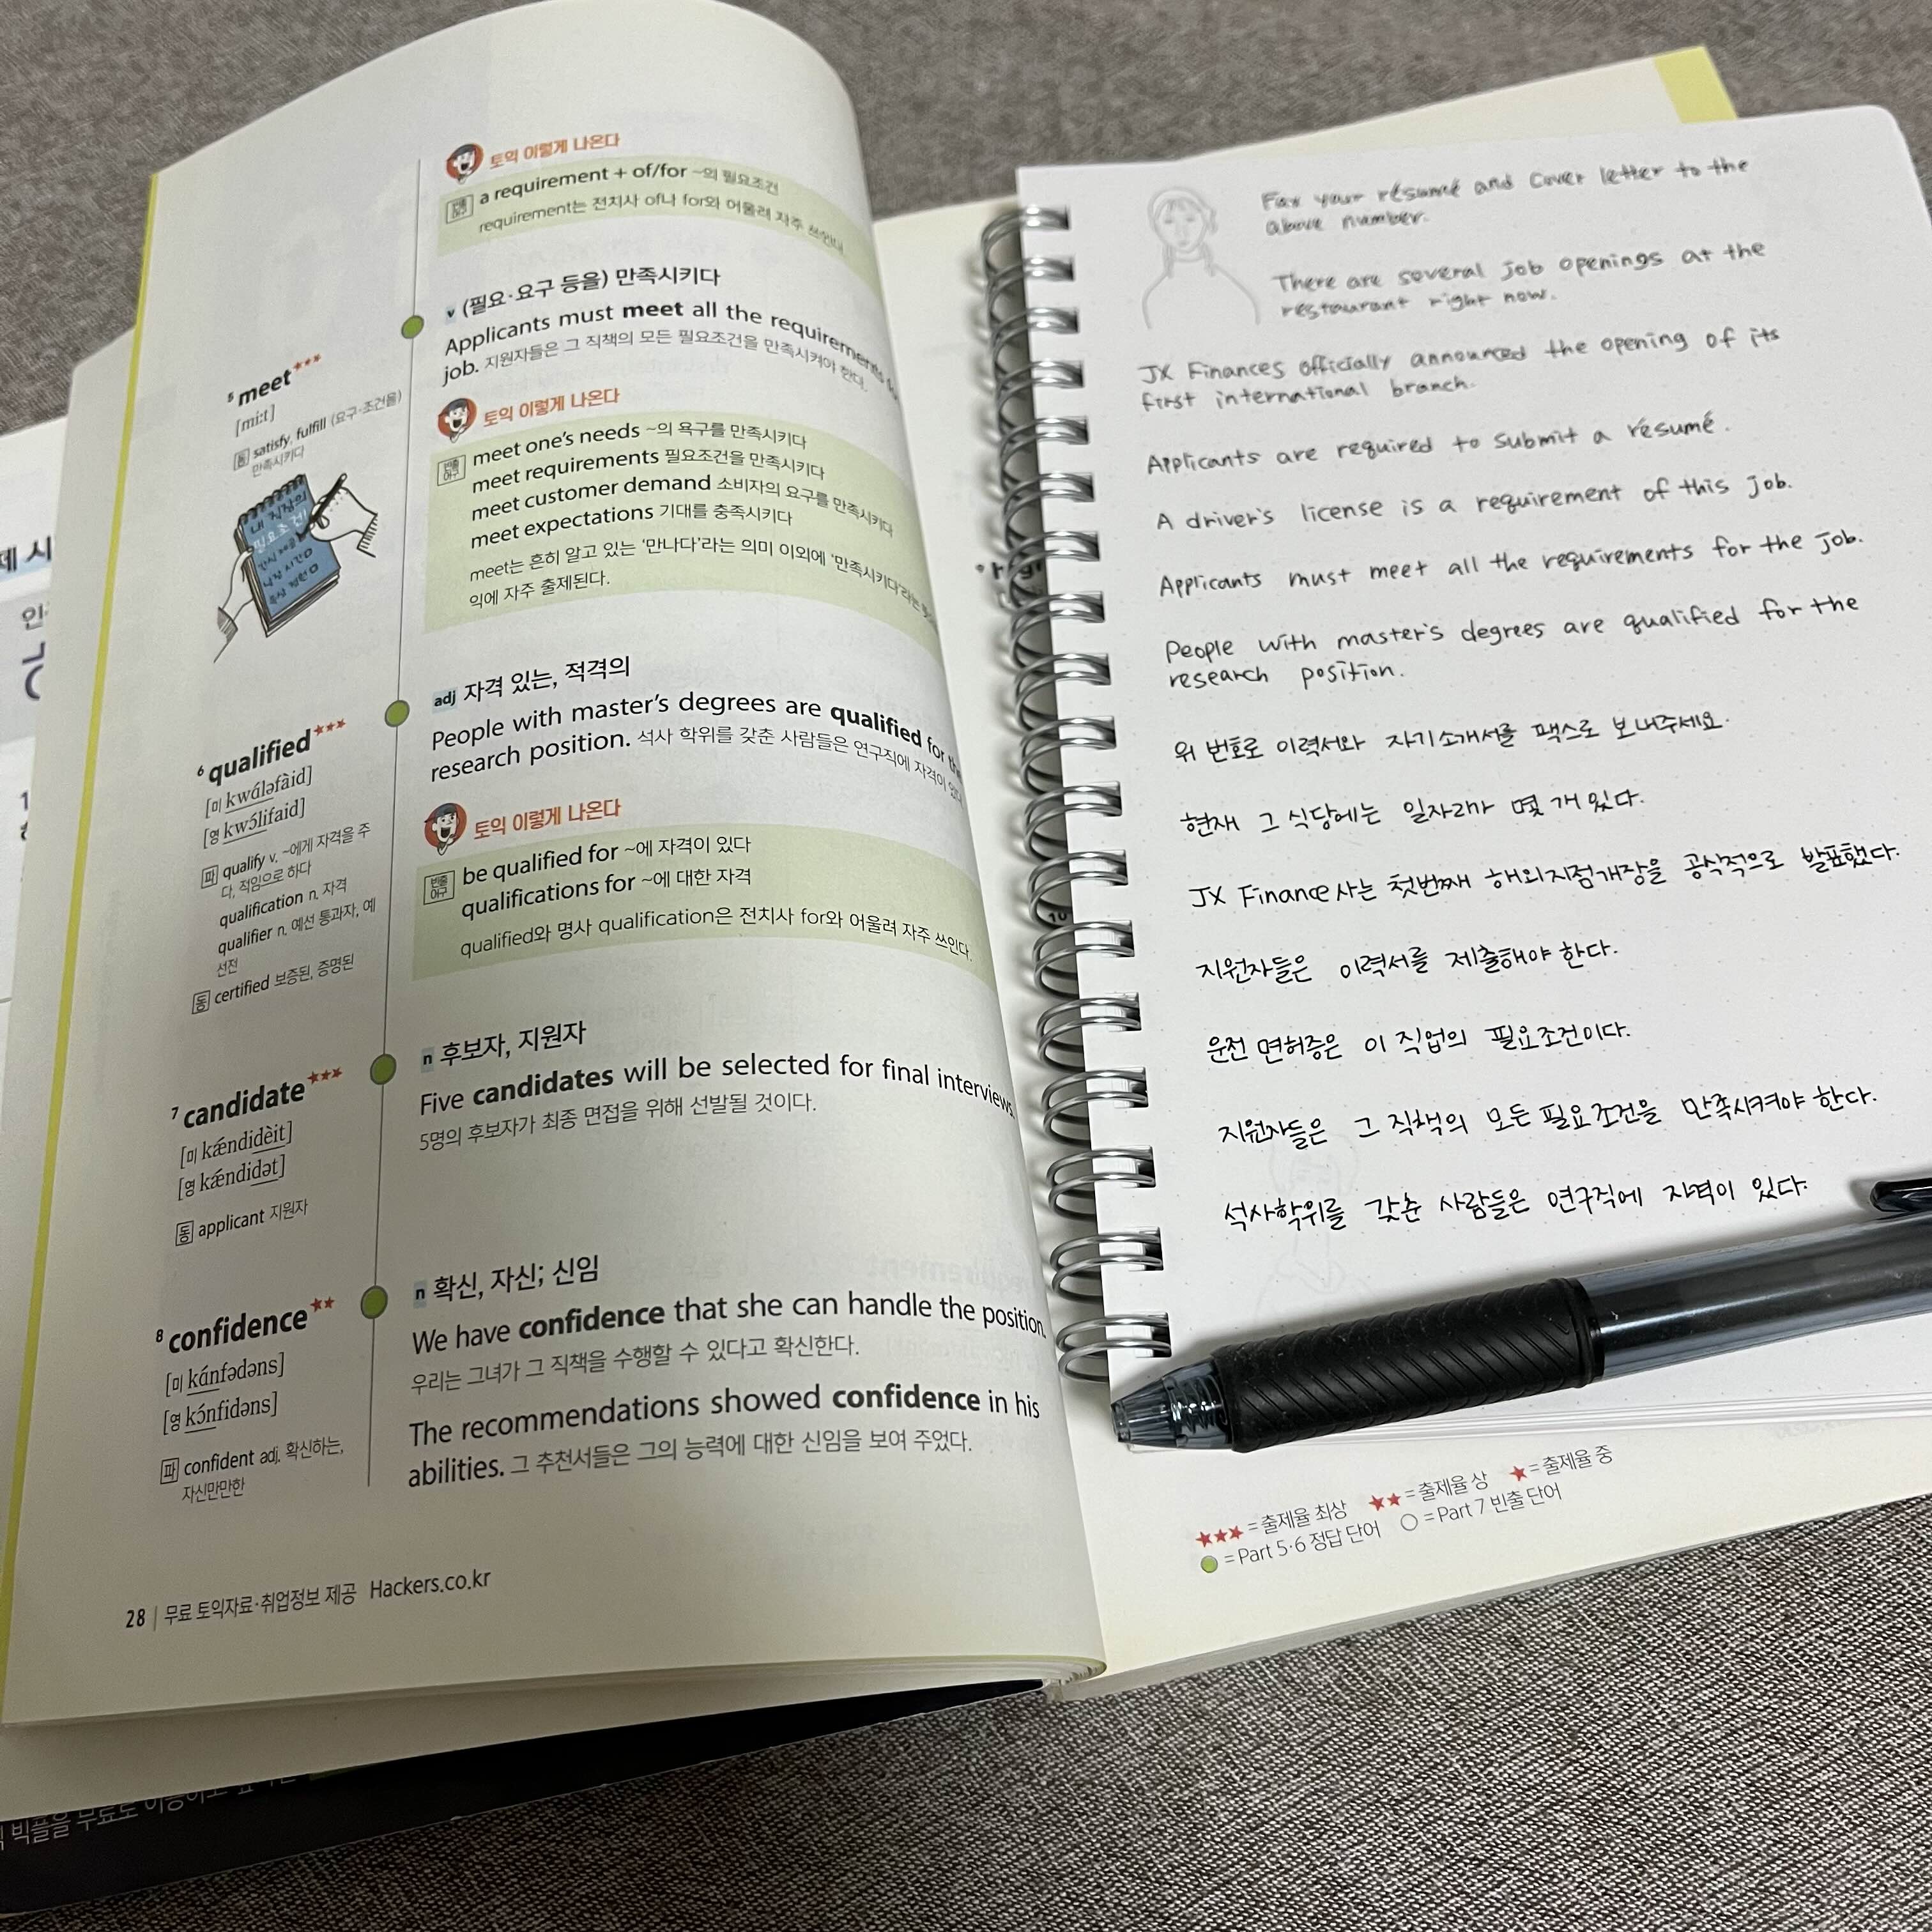 토익 이렇게 나온다
빈출 어구 a requirement + of/for ~의 필요조건
requirement는 전치사 of나 for와 어울려 자주 쓰인다.
5 meet***
[mi:t]
동 satisfy, fulfill (요구·조건을)
만족시키다
내 직장의
필요조건!
v (필요·요구 등을) 만족시키다
Applicants must meet all the requirements
job. 지원자들은 그 직책의 모든 필요조건을 만족시켜야 한다.
토익 이렇게 나온다
빈출 어구 meet one's needs ~의 욕구를 만족시키다
meet requirements 필요조건을 만족시키다
meet customer demand 소비자의 요구를 만족시키다
meet expectations 기대를 충족시키다
meet는 흔히 알고 있는 '만나다'라는 의미 이외에 '만족시키다'라는
익에 자주 출제된다.
6 qualified***
[미 kwáləfàid]
[영 kwɔ́lifaid]
파 qualify v. ~에게 자격을 주
다, 적임으로 하다
qualification n. 자격
qualifier n. 예선 통과자, 예
선전
동 certified 보증된, 증명된
adj 자격 있는, 적격의
People with master's degrees are qualified for
research position. 석사 학위를 갖춘 사람들은 연구직에 자격이 있다
토익 이렇게 나온다
빈출 어구 be qualified for ~에 자격이 있다
qualifications for ~에 대한 자격
qualified와 명사 qualification은 전치사 for와 어울려 자주 쓰인다.
7 candidate***
[미 kǽndidèit]
[영 kǽndidət]
동 applicant 지원자
n 후보자, 지원자
Five candidates will be selected for final interviews.
5명의 후보자가 최종 면접을 위해 선발될 것이다.
8 confidence**
[미 kánfədəns]
[영 kɔ́nfidəns]
파 confident adj. 확신하는,
자신만만한
n 확신, 자신; 신임
We have confidence that she can handle the position.
우리는 그녀가 그 직책을 수행할 수 있다고 확신한다.
The recommendations showed confidence in his
abilities. 그 추천서들은 그의 능력에 대한 신임을 보여 주었다.
28 | 무료 토익자료·취업정보 제공 Hackers.co.kr
Fax your résumé and cover letter to the
above number.
There are several job openings at the
restaurant right now.
JX Finances officially announced the opening of its
first international branch.
Applicants are required to submit a résumé.
A driver's license is a requirement of this job.
Applicants must meet all the requirements for the job.
People with master's degrees are qualified for the
research position.
위 번호로 이력서와 자기소개서를 팩스로 보내주세요.
현재 그 식당에는 일자리가 몇 개 있다.
JX Finance사는 첫번째 해외지점개장을 공식적으로 발표했다.
지원자들은 이력서를 제출해야 한다.
운전 면허증은 이 직업의 필요조건이다.
지원자들은 그 직책의 모든 필요조건을 만족시켜야 한다.
석사학위를 갖춘 사람들은 연구직에 자격이 있다.
★★★ = 출제율 최상 ★★ = 출제율 상 ★ = 출제율 중
= Part 5·6 정답 단어 ○ = Part 7 빈출 단어